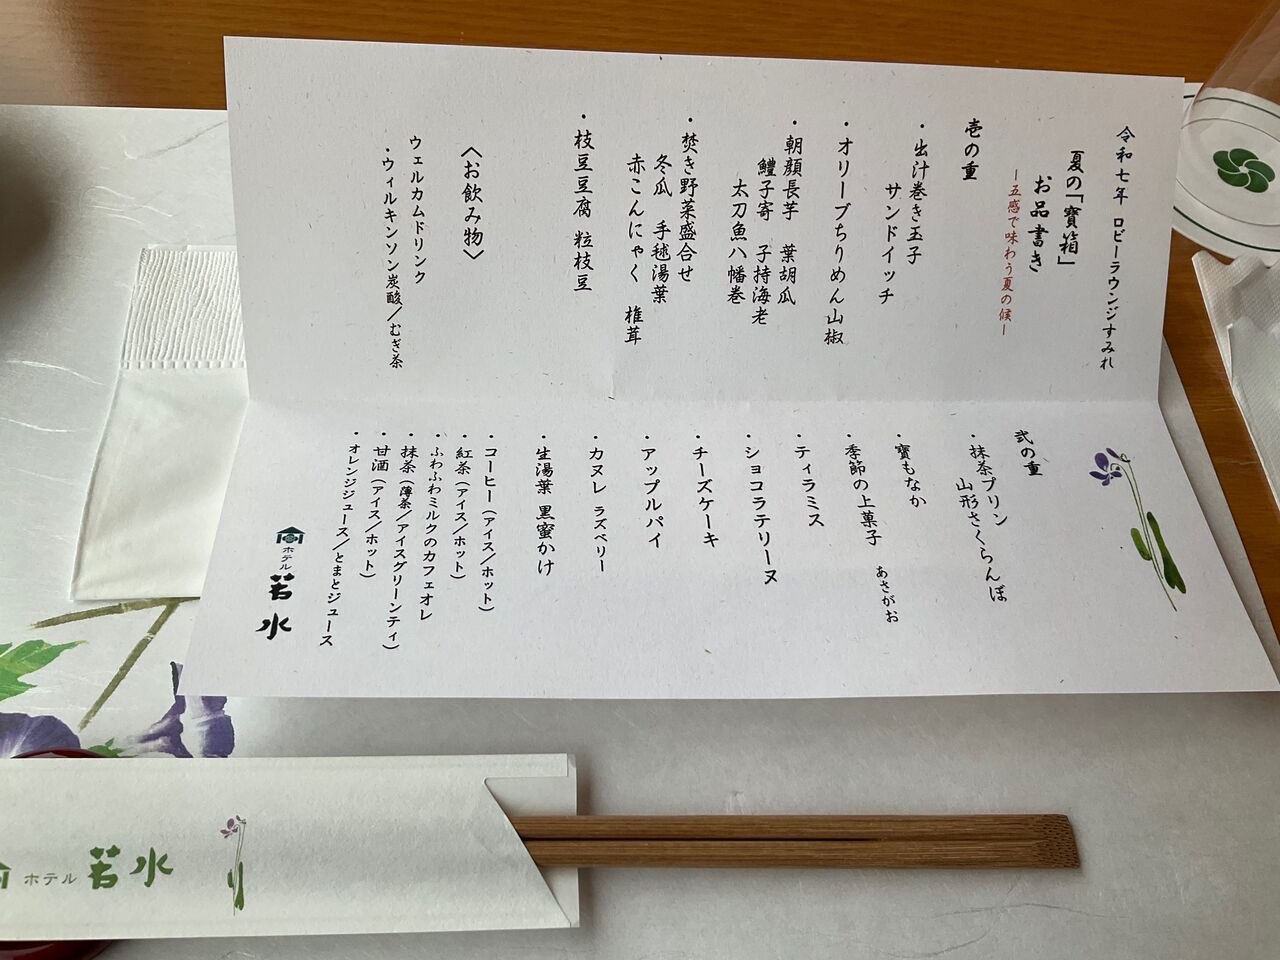 令和七年 ロビーラウンジすみれ
夏の「寶箱」
お品書き
ー五感で味わう夏の候ー
壱の重
・出汁巻き玉子
サンドイッチ
・オリーブちりめん山椒
・朝顔長芋 葉胡瓜
鱧子寄 子持海老
太刀魚八幡巻
・焚き野菜盛合せ
冬瓜 手毬湯葉
赤こんにゃく 椎茸
・枝豆豆腐 粒枝豆
〈お飲み物〉
ウェルカムドリンク
・ウィルキンソン炭酸／むぎ茶
弐の重
・抹茶プリン
山形さくらんぼ
・寶もなか
・季節の上菓子 あさがお
・ティラミス
・ショコラテリーヌ
・チーズケーキ
・アップルパイ
・カヌレ ラズベリー
・生湯葉 黒蜜かけ
・コーヒー（アイス／ホット）
・紅茶（アイス／ホット）
・ふわふわミルクのカフェオレ
・抹茶（薄茶／アイスグリーンティ）
・甘酒（アイス／ホット）
・オレンジジュース／とまとジュース
ホテル
若水
ホテル 若水